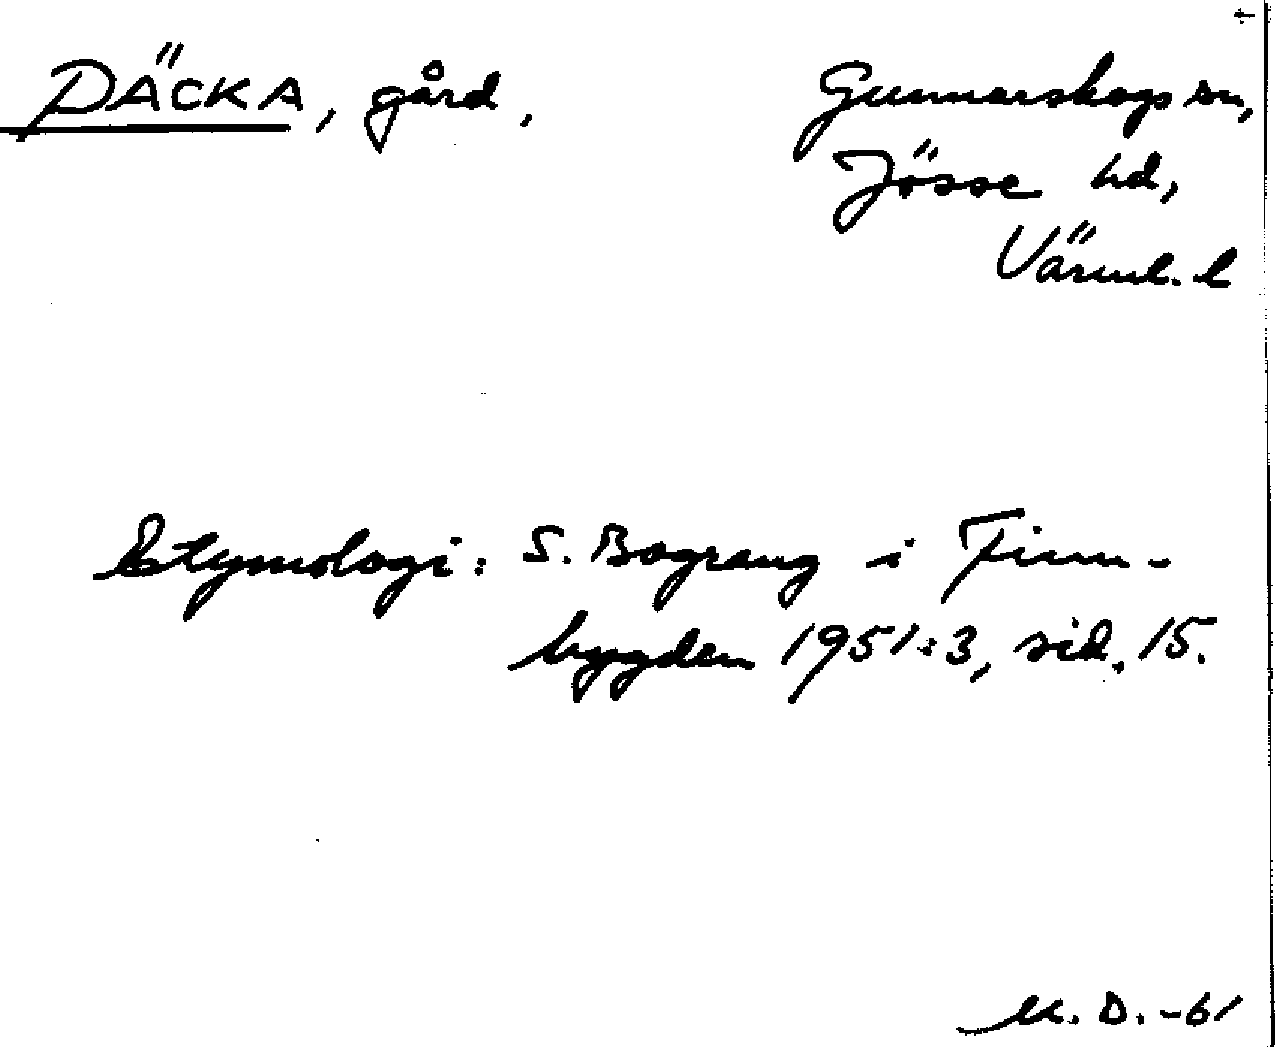 PÄCKA, gård, Gunnarskogs sn,
Jösse hd,
Värml. l
Etymologi: S. Bograng i Finn-
bygden 1951:3, sid. 15.
M. D. -61